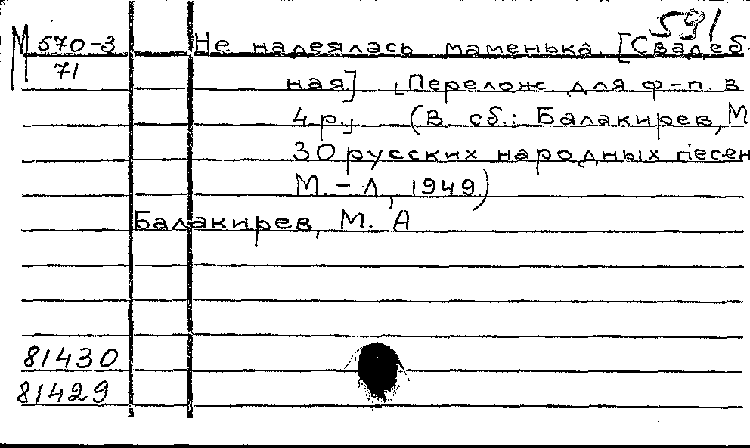 591
М 570-3 Не надеялась маменька. [Свадеб-
71 ная] [Перелож. для ф-п. в
4 р.] (В сб.: Балакирев, М
30 русских народных песен
М. - Л., 1949)
Балакирев, М. А
81430
81429